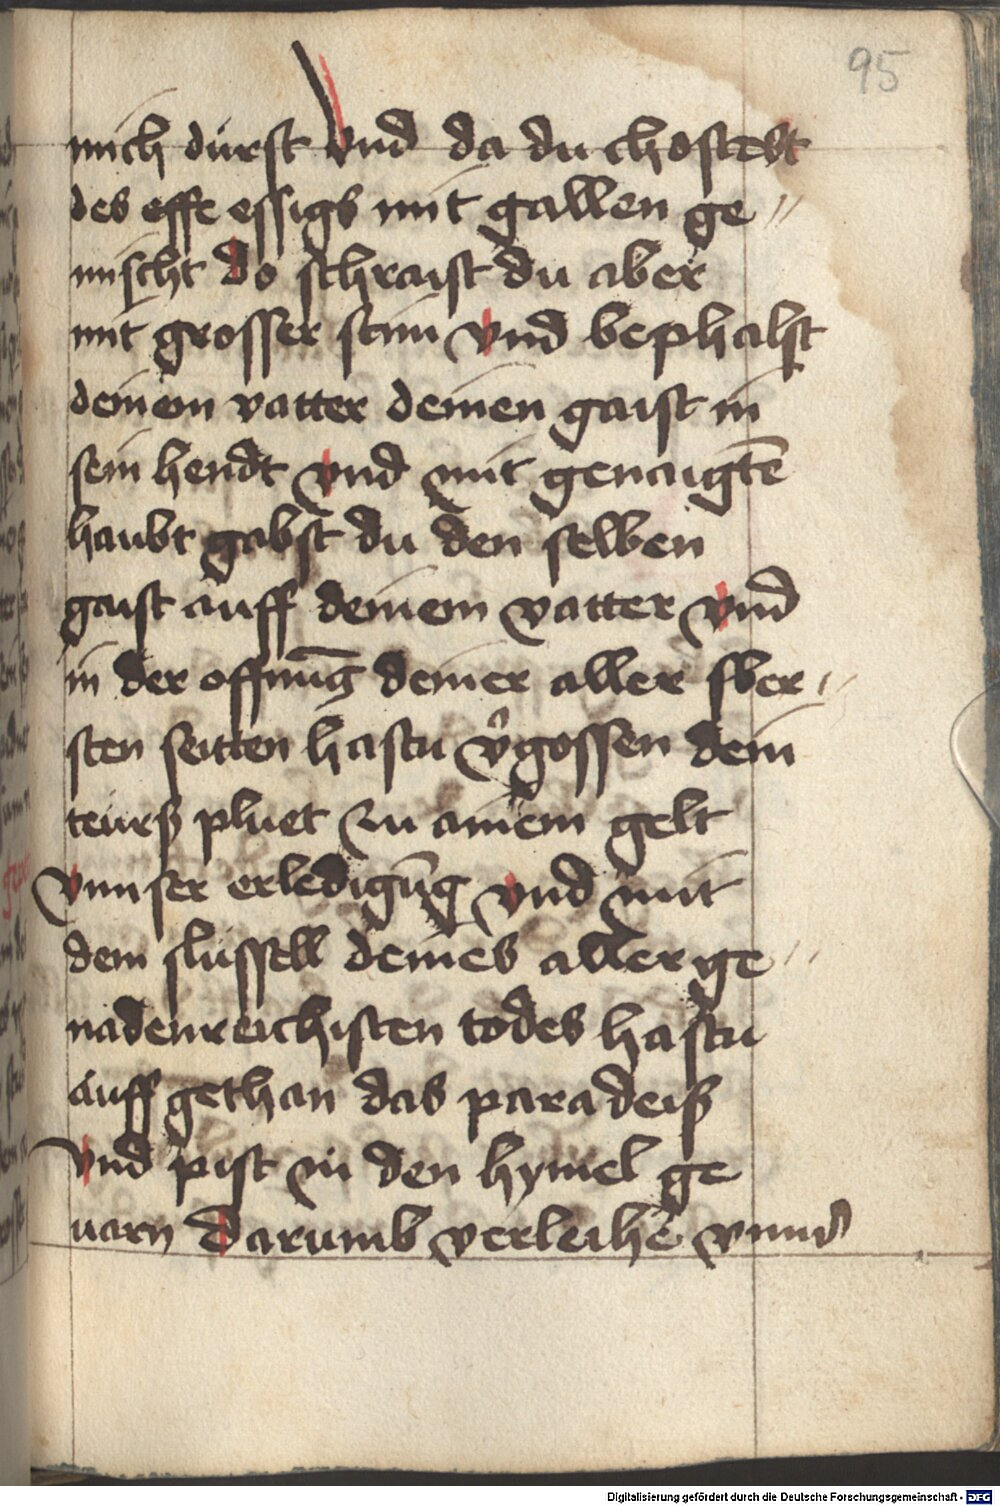 95
mich dürst vnd da du chostest
des esse essigs mit gallen ge〃
mischt do schraist du aber
mit grosser stim vnd bephalst
deinem vatter deinen gaist in
sein hendt vnd mit genaigtē
haubt gabst du den selben
gaist auff deinem vatter vnd
in der offnūg deiner aller sber〃
sten seitten hastu v̉gossen dein
teurß pluet zu ainem gelt
vnnser erledigūg vnd mit
dem slussell deines aller ge〃
nadenreichisten todes hastu
auff gethan das paradeiß
vnd pist in den hymel ge
uarn Darumb verleihe vnnd
Digitalisierung gefördert durch die Deutsche Forschungsgemeinschaft - DFG